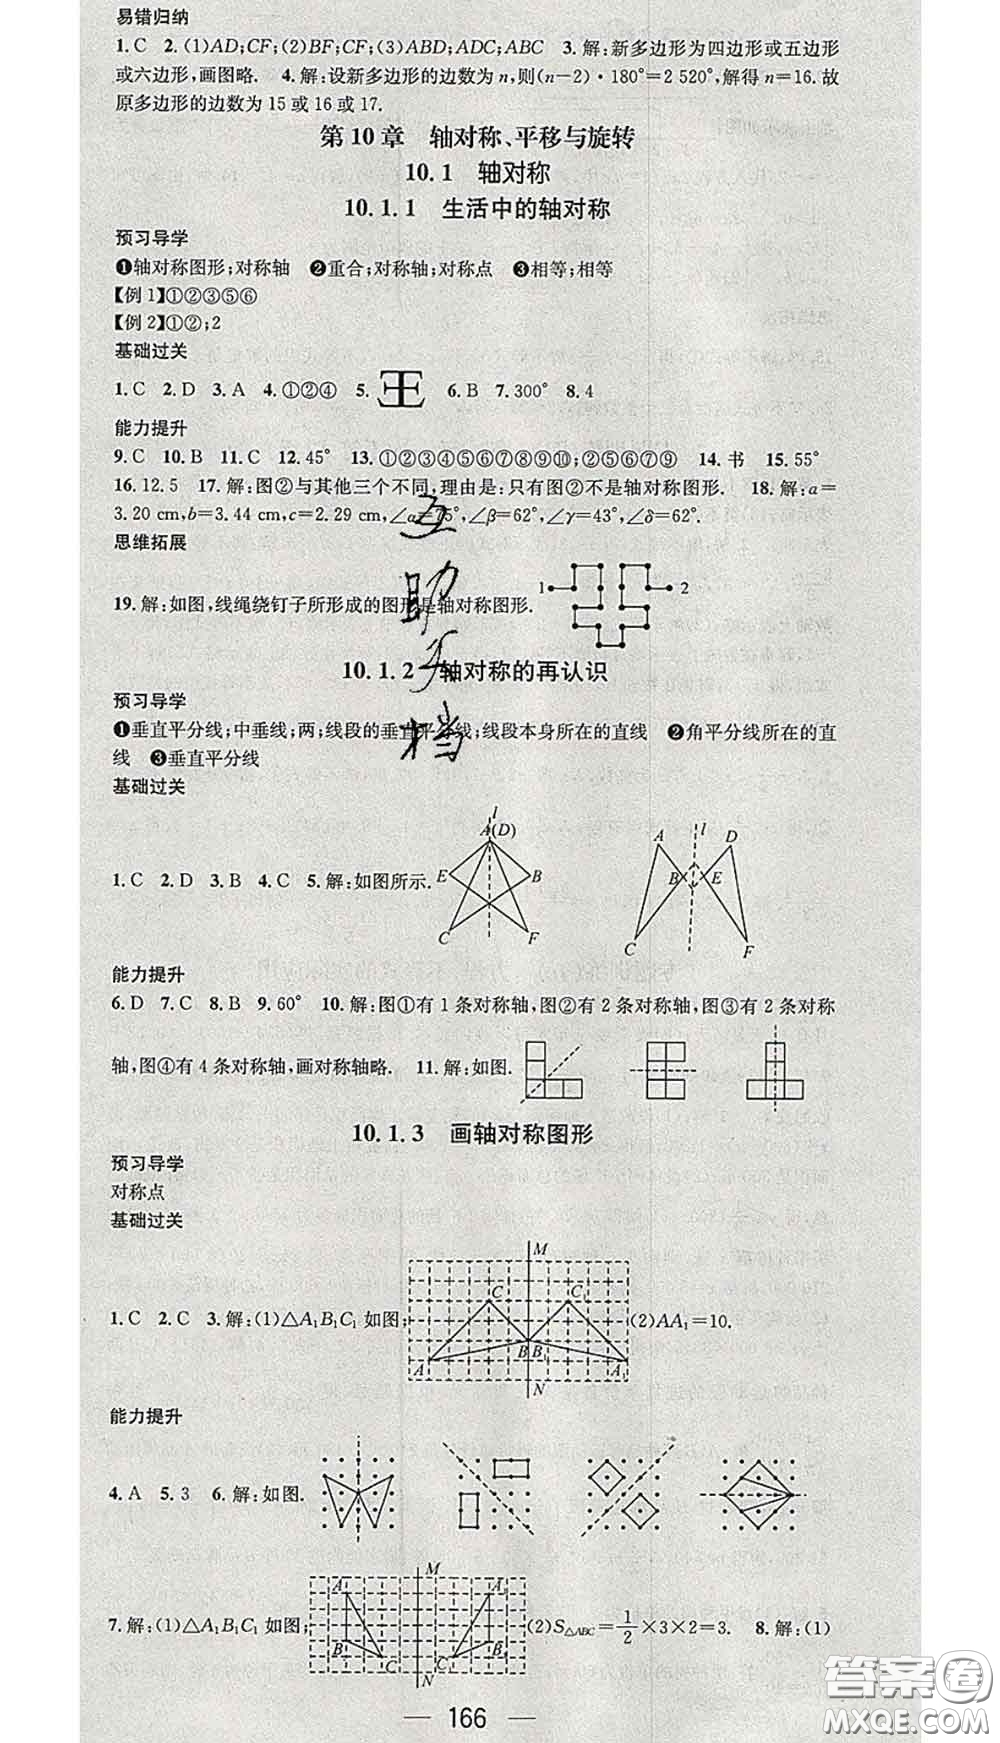 易错归纳
1. C 2. (1)AD;CF;(2)BF;CF;(3)ABD;ADC;ABC 3. 解:新多边形为四边形或五边形
或六边形,画图略. 4. 解:设新多边形的边数为 n,则(n-2)·180°=2 520°,解得 n=16. 故
原多边形的边数为 15 或 16 或 17.
第10章 轴对称、平移与旋转
10.1 轴对称
10.1.1 生活中的轴对称
预习导学
❶轴对称图形;对称轴 ❷重合;对称轴;对称点 ❸相等;相等
【例1】①②③⑤⑥
【例2】①②;2
基础过关
1. C 2. D 3. A 4. ①②④ 5. 6. B 7. 300° 8. 4
能力提升
9. C 10. B 11. C 12. 45° 13. ①②③④⑤⑥⑦⑧⑨⑩;②⑤⑥⑦⑨ 14. 书 15. 55°
16. 12.5 17. 解:图②与其他三个不同,理由是:只有图②不是轴对称图形. 18. 解:a=
3.20 cm,b=3.44 cm,c=2.29 cm,∠α=75°,∠β=62°,∠γ=43°,∠δ=62°.
思维拓展
1 2
19. 解:如图,线绳绕钉子所形成的图形是轴对称图形.
10.1.2 轴对称的再认识
预习导学
❶垂直平分线;中垂线;两;线段的垂直平分线;线段本身所在的直线 ❷角平分线所在的直
线 ❸垂直平分线
基础过关
l
A(D)
E B
C F
l
A D
B E
C F
1. C 2. D 3. B 4. C 5. 解:如图所示.
能力提升
6. D 7. C 8. B 9. 60° 10. 解:图①有 1 条对称轴,图②有 2 条对称轴,图③有 2 条对称
轴,图④有 4 条对称轴,画对称轴略. 11. 解:如图.
10.1.3 画轴对称图形
预习导学
对称点
基础过关
M
C C₁
B B₁
A A₁
N
1. C 2. C 3. 解:(1)△A₁B₁C₁ 如图; (2)AA₁=10.
能力提升
4. A 5. 3 6. 解:如图.
M
A A₁
B B₁
C C₁
N
7. 解:(1)△A₁B₁C₁ 如图; (2)S△ABC=1/2×3×2=3. 8. 解:(1)
166
互助文档
答案圈
MXQE.COM